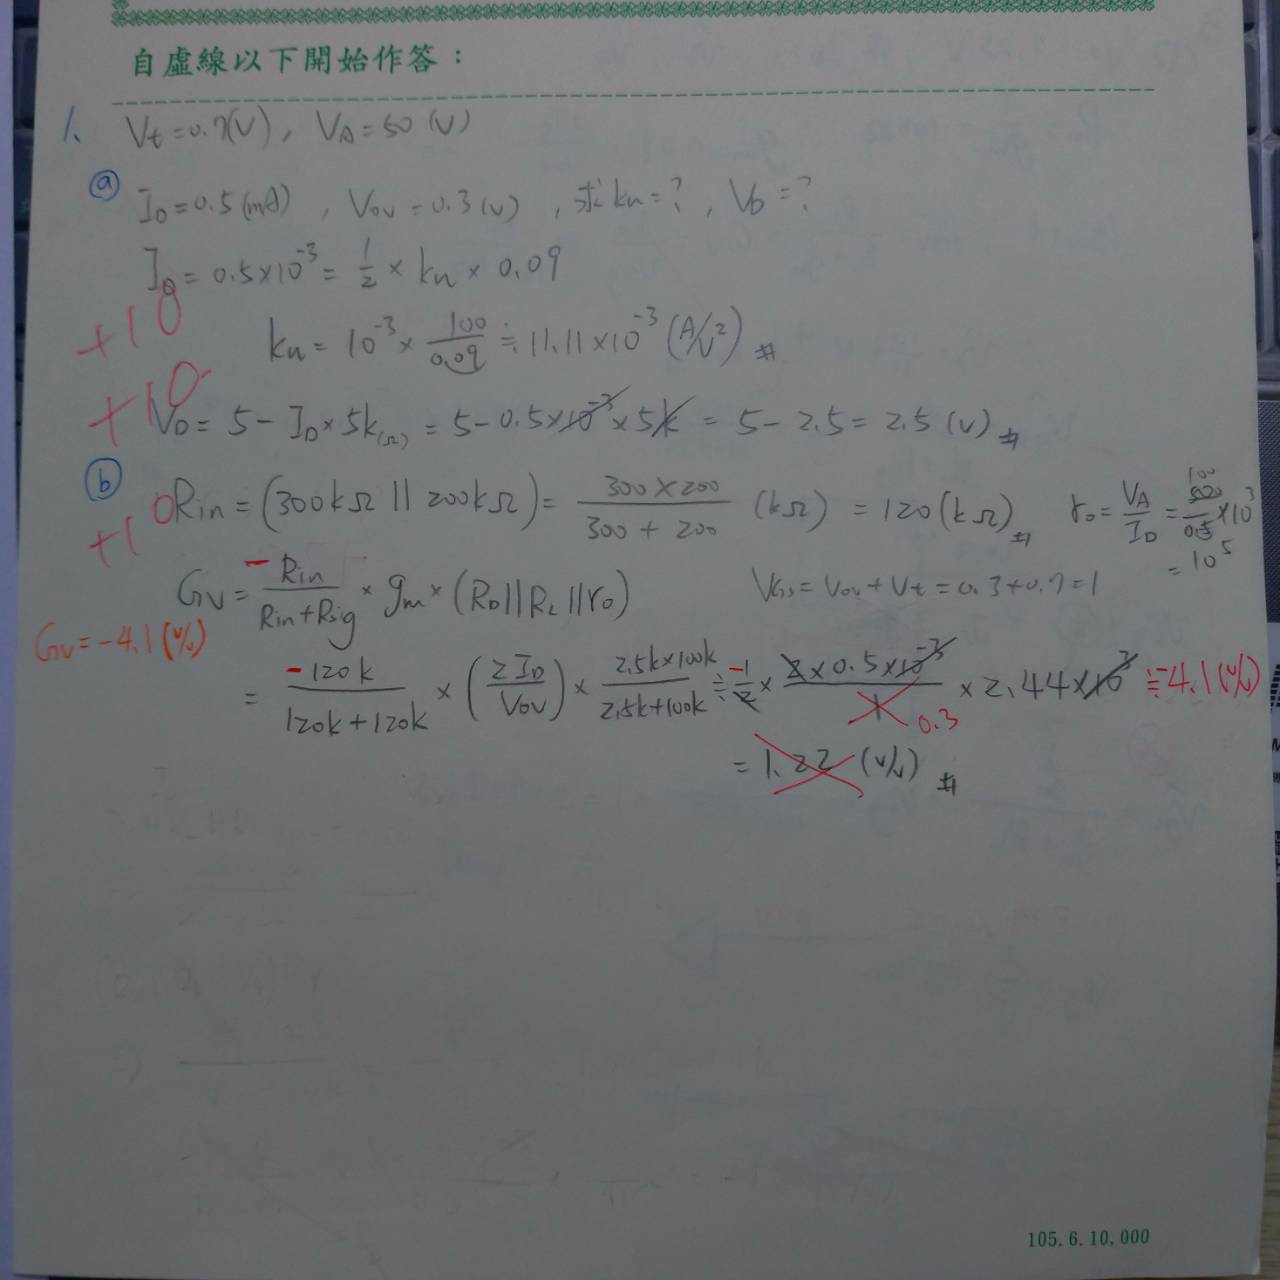 自虛線以下開始作答：
1. Vt=0.7(V), VA=50(V)
ⓐ ID=0.5(mA), VOV=0.3(V), 求kn=?, VD=?
ID=0.5×10^-3=1/2×kn×0.09
+10
kn=10^-3×100/0.09≒11.11×10^-3(A/V^2)#
+10
VD=5-ID×5k(Ω)=5-0.5×10^-3×5k=5-2.5=2.5(V)#
ⓑ Rin=(300kΩ||200kΩ)=300×200/300+200(kΩ)=120(kΩ)# ro=VA/ID=100/0.5×10^3
+10
=10^5
GV=-Rin/Rin+Rsig×gm×(RD||RL||ro) VGS=VOV+Vt=0.3+0.7=1
GV=-4.1(V/V)
=-120k/120k+120k×(2ID/VOV)×2.5k×100k/2.5k+100k≒-1/2×2×0.5×10^-3/1 0.3×2.44×10^3≒-4.1(V/V)
=1.22(V/V)#
105.6.10,000